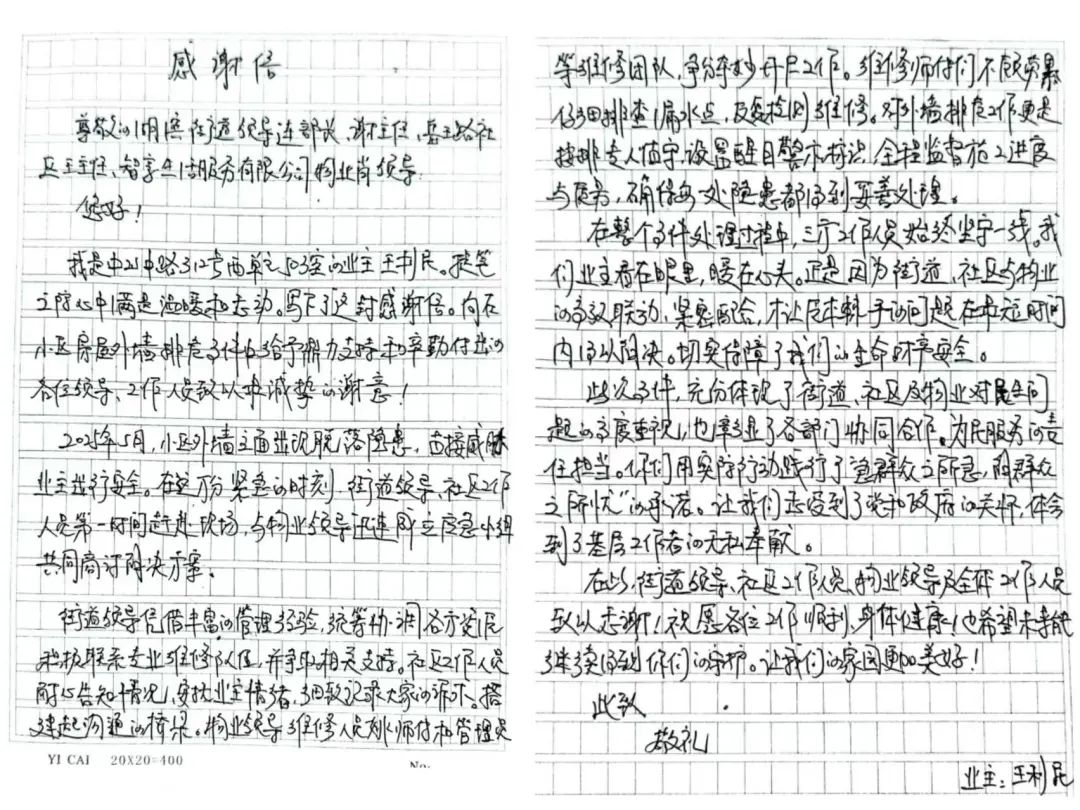 感谢信
尊敬的湖滨街道领导连部长、谢主任、岳王路社
区王主任、智享生活服务有限公司物业肖领导:
您好!
我是中山中路312号西单元503室的业主王利民。提笔
之际心中满是温暖和感动。写下了这封感谢信。向在
小区房屋外墙排危事件中给予鼎力支持和辛勤付出的
各位领导、工作人员致以最诚挚的谢意!
2025年5月,小区外墙立面出现脱落隐患,直接威胁
业主出行安全。在这万分紧急的时刻,街道领导、社区工作
人员第一时间赶赴现场,与物业领导迅速成立应急小组
共同商讨解决方案。
街道领导凭借丰富的管理经验,统筹协调各方资源
积极联系专业维修队伍,并争取相关支持。社区工作人员
耐心告知情况,安抚业主情绪,细致记录大家的诉求、搭
建起沟通的桥梁。物业领导维修人员 师付和管理员
YI CAI 20X20=400 No:
等维修团队,争分夺秒开展工作。维修师付们不顾劳累
仔细排查漏水点,反复检测维修。对外墙排危工作更是
按排专人值守,设置醒目警示标识,全程监督施工进度
与质务,确保每处隐患都得到妥善处理。
在整个事件处理过程中,三方工作人员始终坚守一线。我
们业主看在眼里,暖在心头。正是因为街道、社区与物业
的高效联动,紧密配合,才让原本棘手的问题在最短时间
内得以解决。切实保障了我们的生命财产安全。
此次事件,充份体现了街道、社区及物业对民生问
题的高度重视,也彰显了各部门协同合作。为民服务的责
任担当。你们用实际行动践行了"急群众之所急,解群众
之所忧"的承诺。让我们感受到了党和政府的关怀,体会
到了基层工作者的无私奉献。
在此,街道领导、社区工作人员、物业领导及全体工作人员
致以感谢!祝愿各位工作顺利、身体健康!也希望未来能
继续得到你们的守护。让我们的家园更加美好!
此致
敬礼
业主:王利民